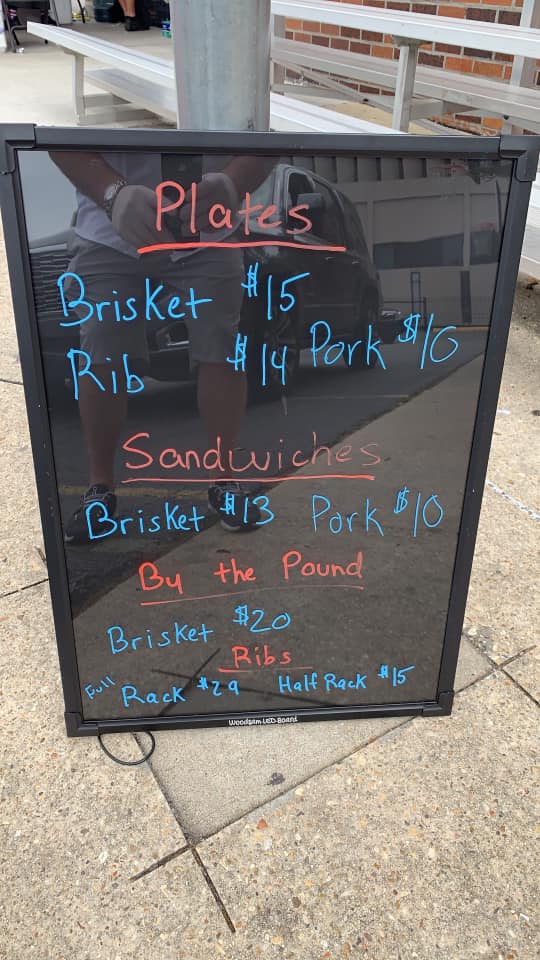 Plates
Brisket $15
Rib $14 Pork $10
Sandwiches
Brisket $13 Pork $10
By the Pound
Brisket $20
Ribs
Full Rack $29 Half Rack $15
Woodsam LED-Board